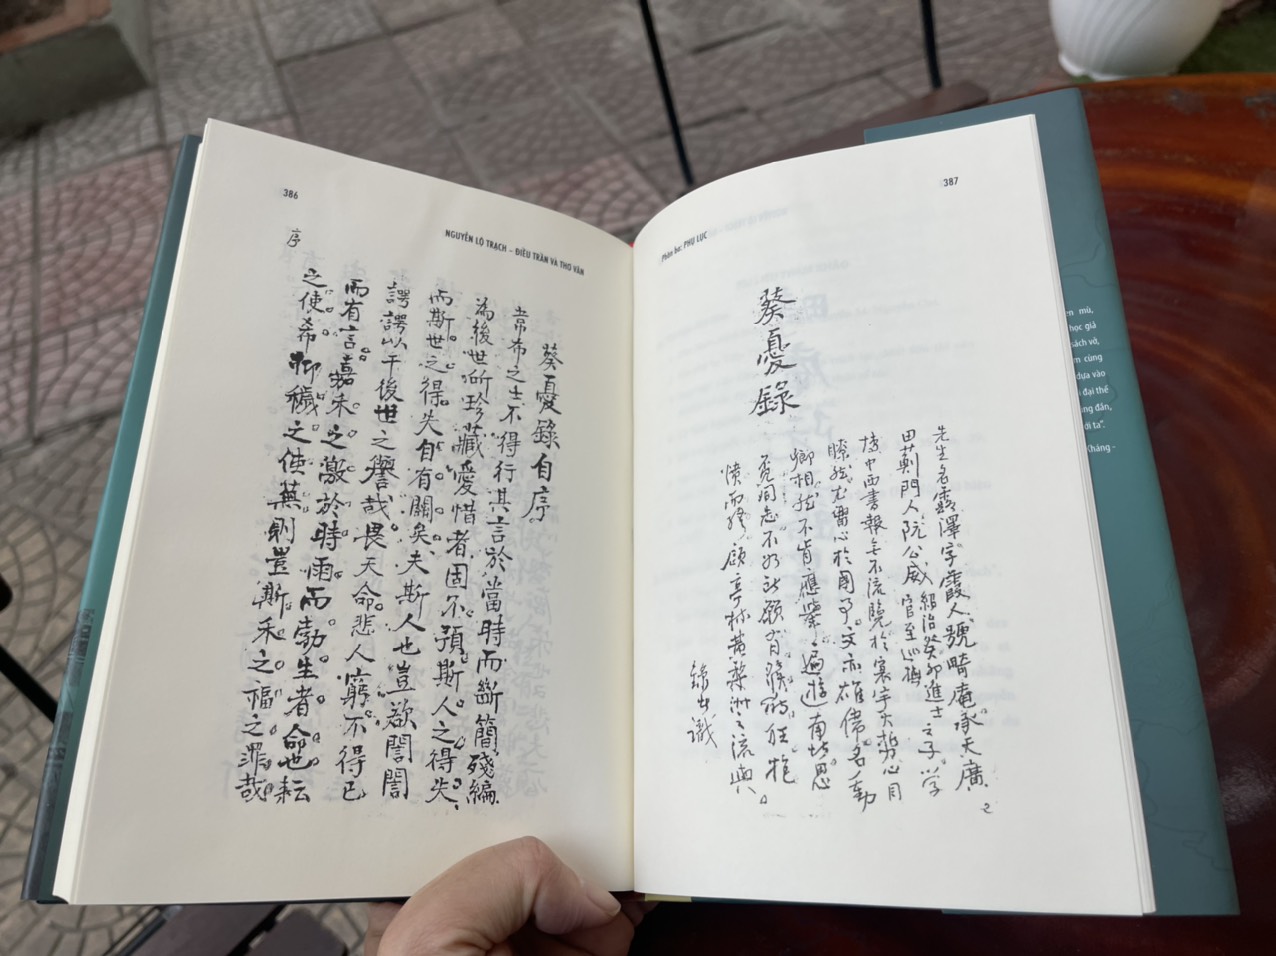 386
NGUYỄN LỘ TRẠCH – ĐIỀU TRẦN VÀ THƠ VĂN
葵憂錄自序
常希之士不得行其言於當時而斷簡殘編
為後世所珍藏愛惜者固不預斯人之得失
而斯世之得失自有關矣夫斯人也豈欲誾誾
諤諤以干後世之譽哉畏天命悲人窮不得已
而有言嘉禾之激於時雨而勃生者命也耘
之使希柳穢之使蕪則豈斯禾之福之罪哉
序
387
Phần ba: PHỤ LỤC
葵憂錄
先生名露澤字霞人號畸庵承天廣
田薊門人阮公威紹治癸卯進士之子学
官至巡撫
博中西書報無不流覽於寰宇大勢心目
瞭然尤留心於國事文亦雄偉名動
卿相然不肯應舉遍遊南圻思
憤而終顧亭林黃梨洲之流與
識
ện mù,
học giả
sách vở,
m cùng
dựa vào
đại thể
ng đắn,
ới ta”.
Kháng -